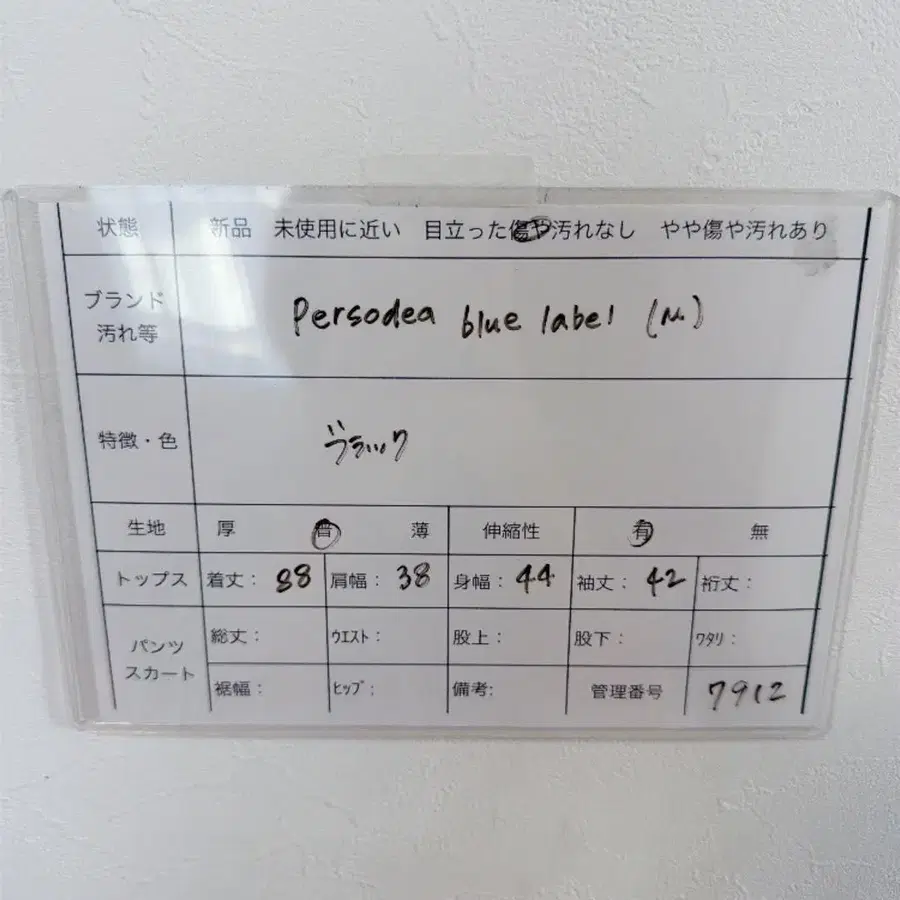 状態 新品 未使用に近い 目立った傷や汚れなし やや傷や汚れあり
ブランド
汚れ等
Persodea blue label (M)
特徴・色 ブラック
生地 厚 普 薄 伸縮性 有 無
トップス 着丈: 88 肩幅: 38 身幅: 44 袖丈: 42 裄丈:
パンツ
スカート
総丈: ウエスト: 股上: 股下: ワタリ:
裾幅: ヒップ: 備考: 管理番号 7912